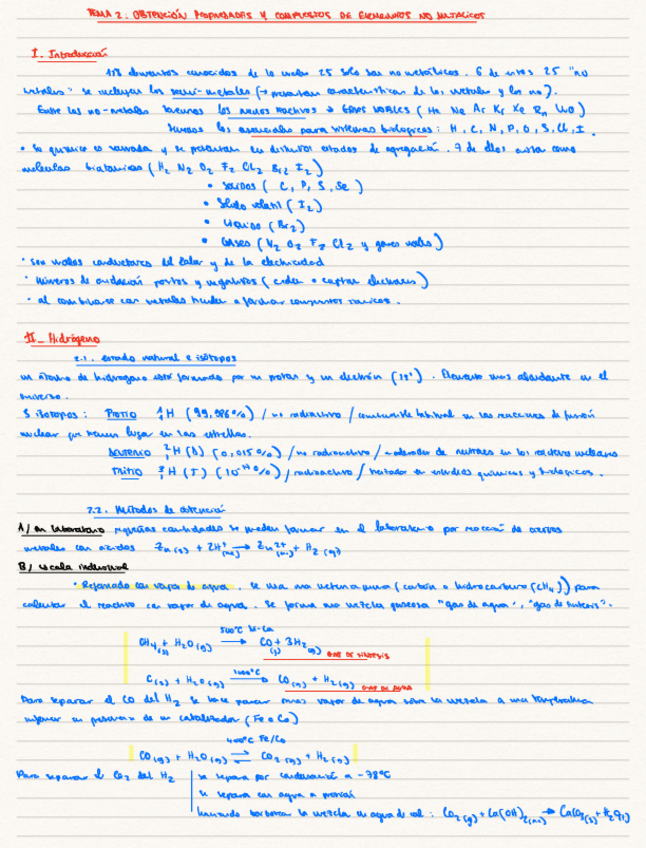 TEMA 2. OBTENCIÓN PROPIEDADES Y COMPUESTOS DE ELEMENTOS NO METÁLICOS
I. Introducción
118 elementos conocidos de los cuales 25 solo son no metálicos. 6 de estos 25 "no
metales" se incluyen los semi-metales (→ presentan características de los metales y los no).
Entre los no-metales tenemos los menos reactivos → GASES NOBLES (He Ne Ar Kr Xe Rn Uuo)
Tenemos los esenciales para sistemas biológicos: H, C, N, P, O, S, Cl, I.
• Su química es variada y se presentan en distintos estados de agregación. 7 de ellos existen como
moléculas biatómicas (H2 N2 O2 F2 Cl2 Br2 I2)
• Sólidos (C, P, S, Se)
• Sólido volátil (I2)
• Líquido (Br2)
• Gases (N2 O2 F2 Cl2 y gases nobles)
• son malos conductores del calor y de la electricidad
• Números de oxidación positivos y negativos (ceder o captar electrones)
• al combinarse con metales tienden a formar compuestos iónicos.
II_ Hidrógeno
2.1. estado natural e isótopos
un átomo de hidrógeno está formado por un protón y un electrón (1s1). Elemento mas abundante en el
universo.
3 isótopos: PROTIO 1 1 H (99,985%) / no radiactivo / combustible habitual en las reacciones de fusión
nuclear que tienen lugar en las estrellas.
DEUTERIO 2 1 H (D) (0,015%) / no radioactivo / moderador de neutrones en los reactores nucleares
TRITIO 3 1 H (T) / radioactivo / trazador en estudios químicos y biológicos.
2.2. Métodos de obtención
A/ en laboratorio pequeñas cantidades se pueden formar en el laboratorio por reacción de ciertos
metales con ácidos Zn(s) + 2H+(ac) → Zn2+(ac) + H2(g)
B/ escala industrial
• Reformado con vapor de agua. Se usa una materia prima (carbón o hidrocarburo (CH4)) para
calentar el reactivo con vapor de agua. Se forma una mezcla gaseosa "gas de agua", "gas de síntesis".
Ni-Co
CH4 + H2O(g) → CO + 3H2(g) GAS DE SÍNTESIS
1000°C
C(s) + H2O(g) → CO(g) + H2(g) GAS DE AGUA
Para separar el CO del H2 se hace pasar mas vapor de agua sobre la mezcla a una temperatura
inferior en presencia de un catalizador (Fe o Co)
400°C Fe/Co
CO(g) + H2O(g) ⇌ CO2(g) + H2(g)
Para separar el CO2 del H2 se separa por condensación a -78°C
se separa con agua a presión
haciendo borbotear la mezcla en agua de cal: CO2(g) + Ca(OH)2(ac) → CaCO3(s) + H2O(l)